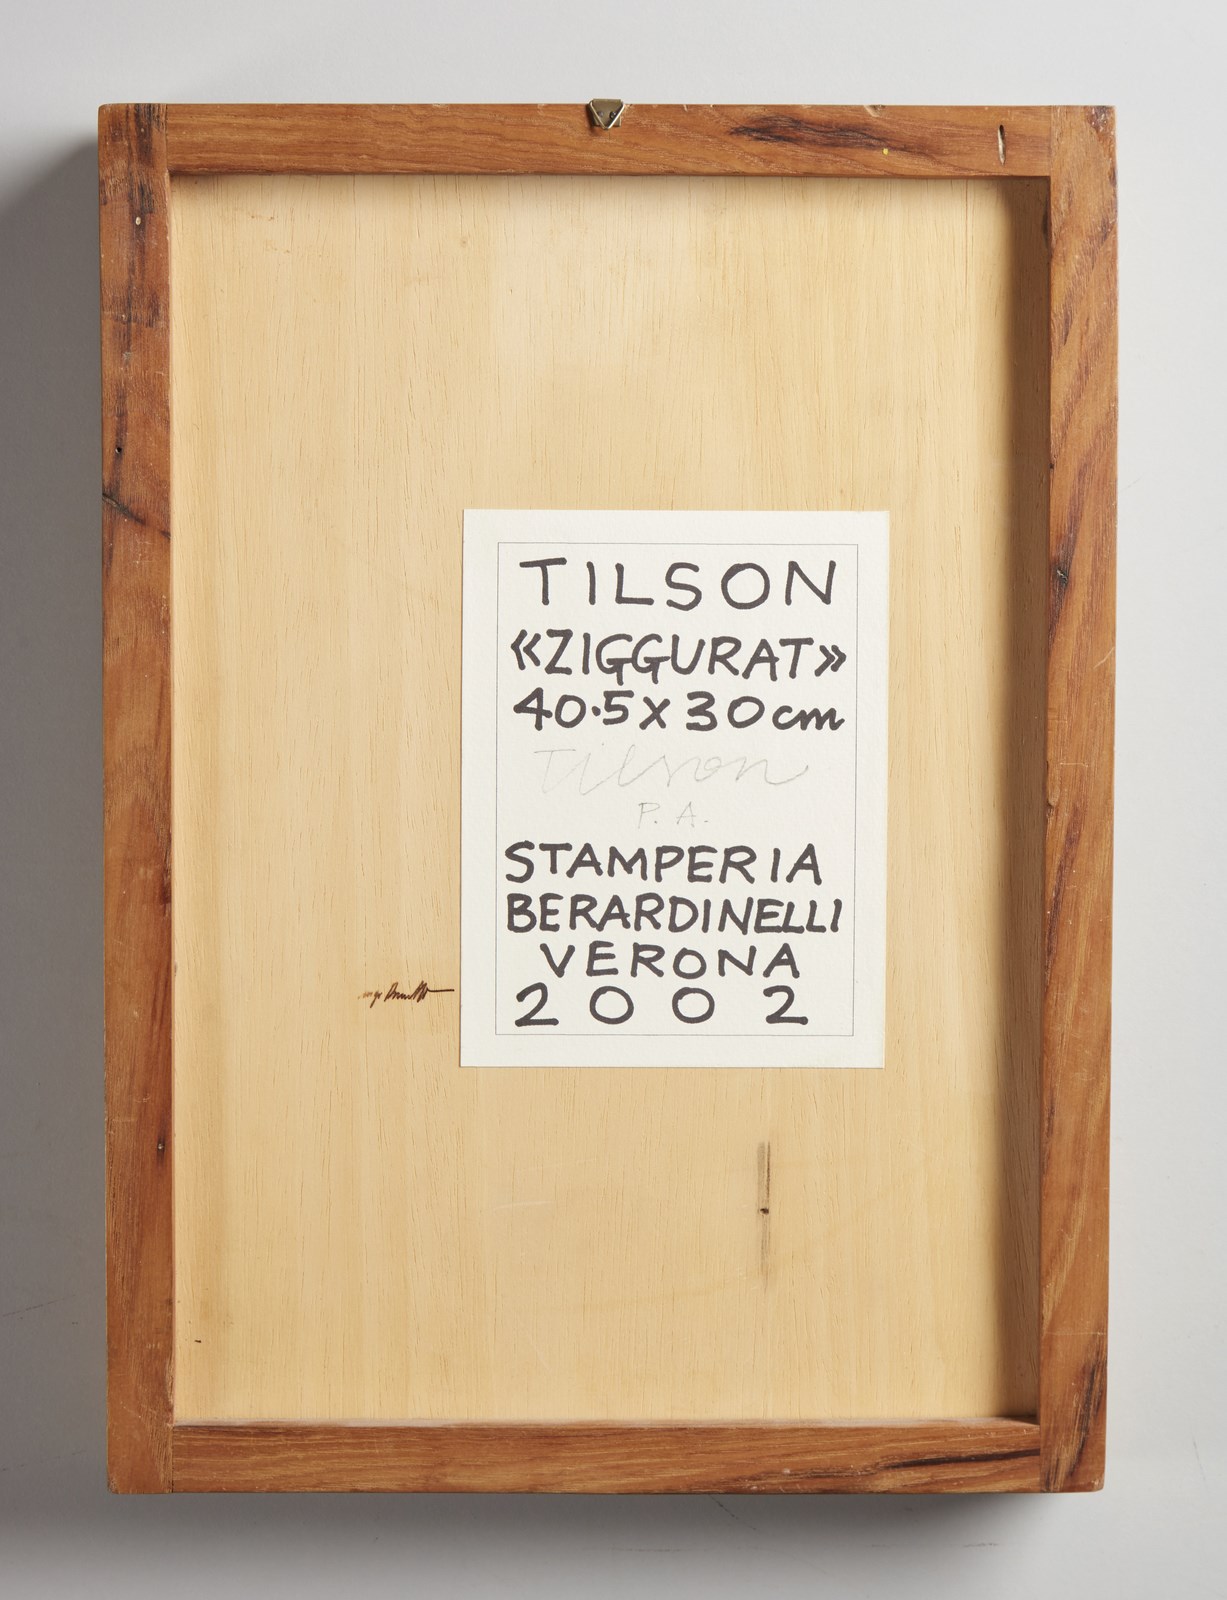 TILSON
«ZIGGURAT»
40.5 x 30 cm
Tilson
P. A.
STAMPERIA
BERARDINELLI
VERONA
2002